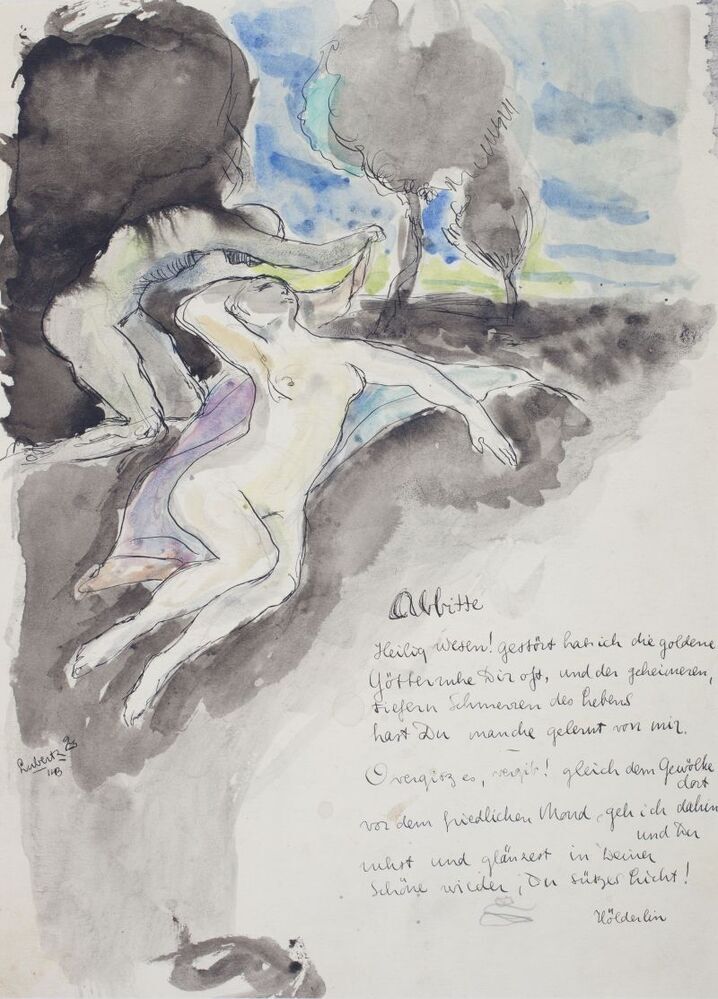 Abbitte
Heilig Wesen! gestört hab ich die goldene
Götterruhe Dir oft, und der geheimeren,
tiefern Schmerzen des Lebens
hast Du manche gelernt von mir.
O vergiß es, vergib! gleich dem Gewölke
dort
vor dem friedlichen Mond, geh ich dahin
und Du
ruhst und glänzest in Deiner
Schöne wieder, Du süßes Licht!
Hölderlin